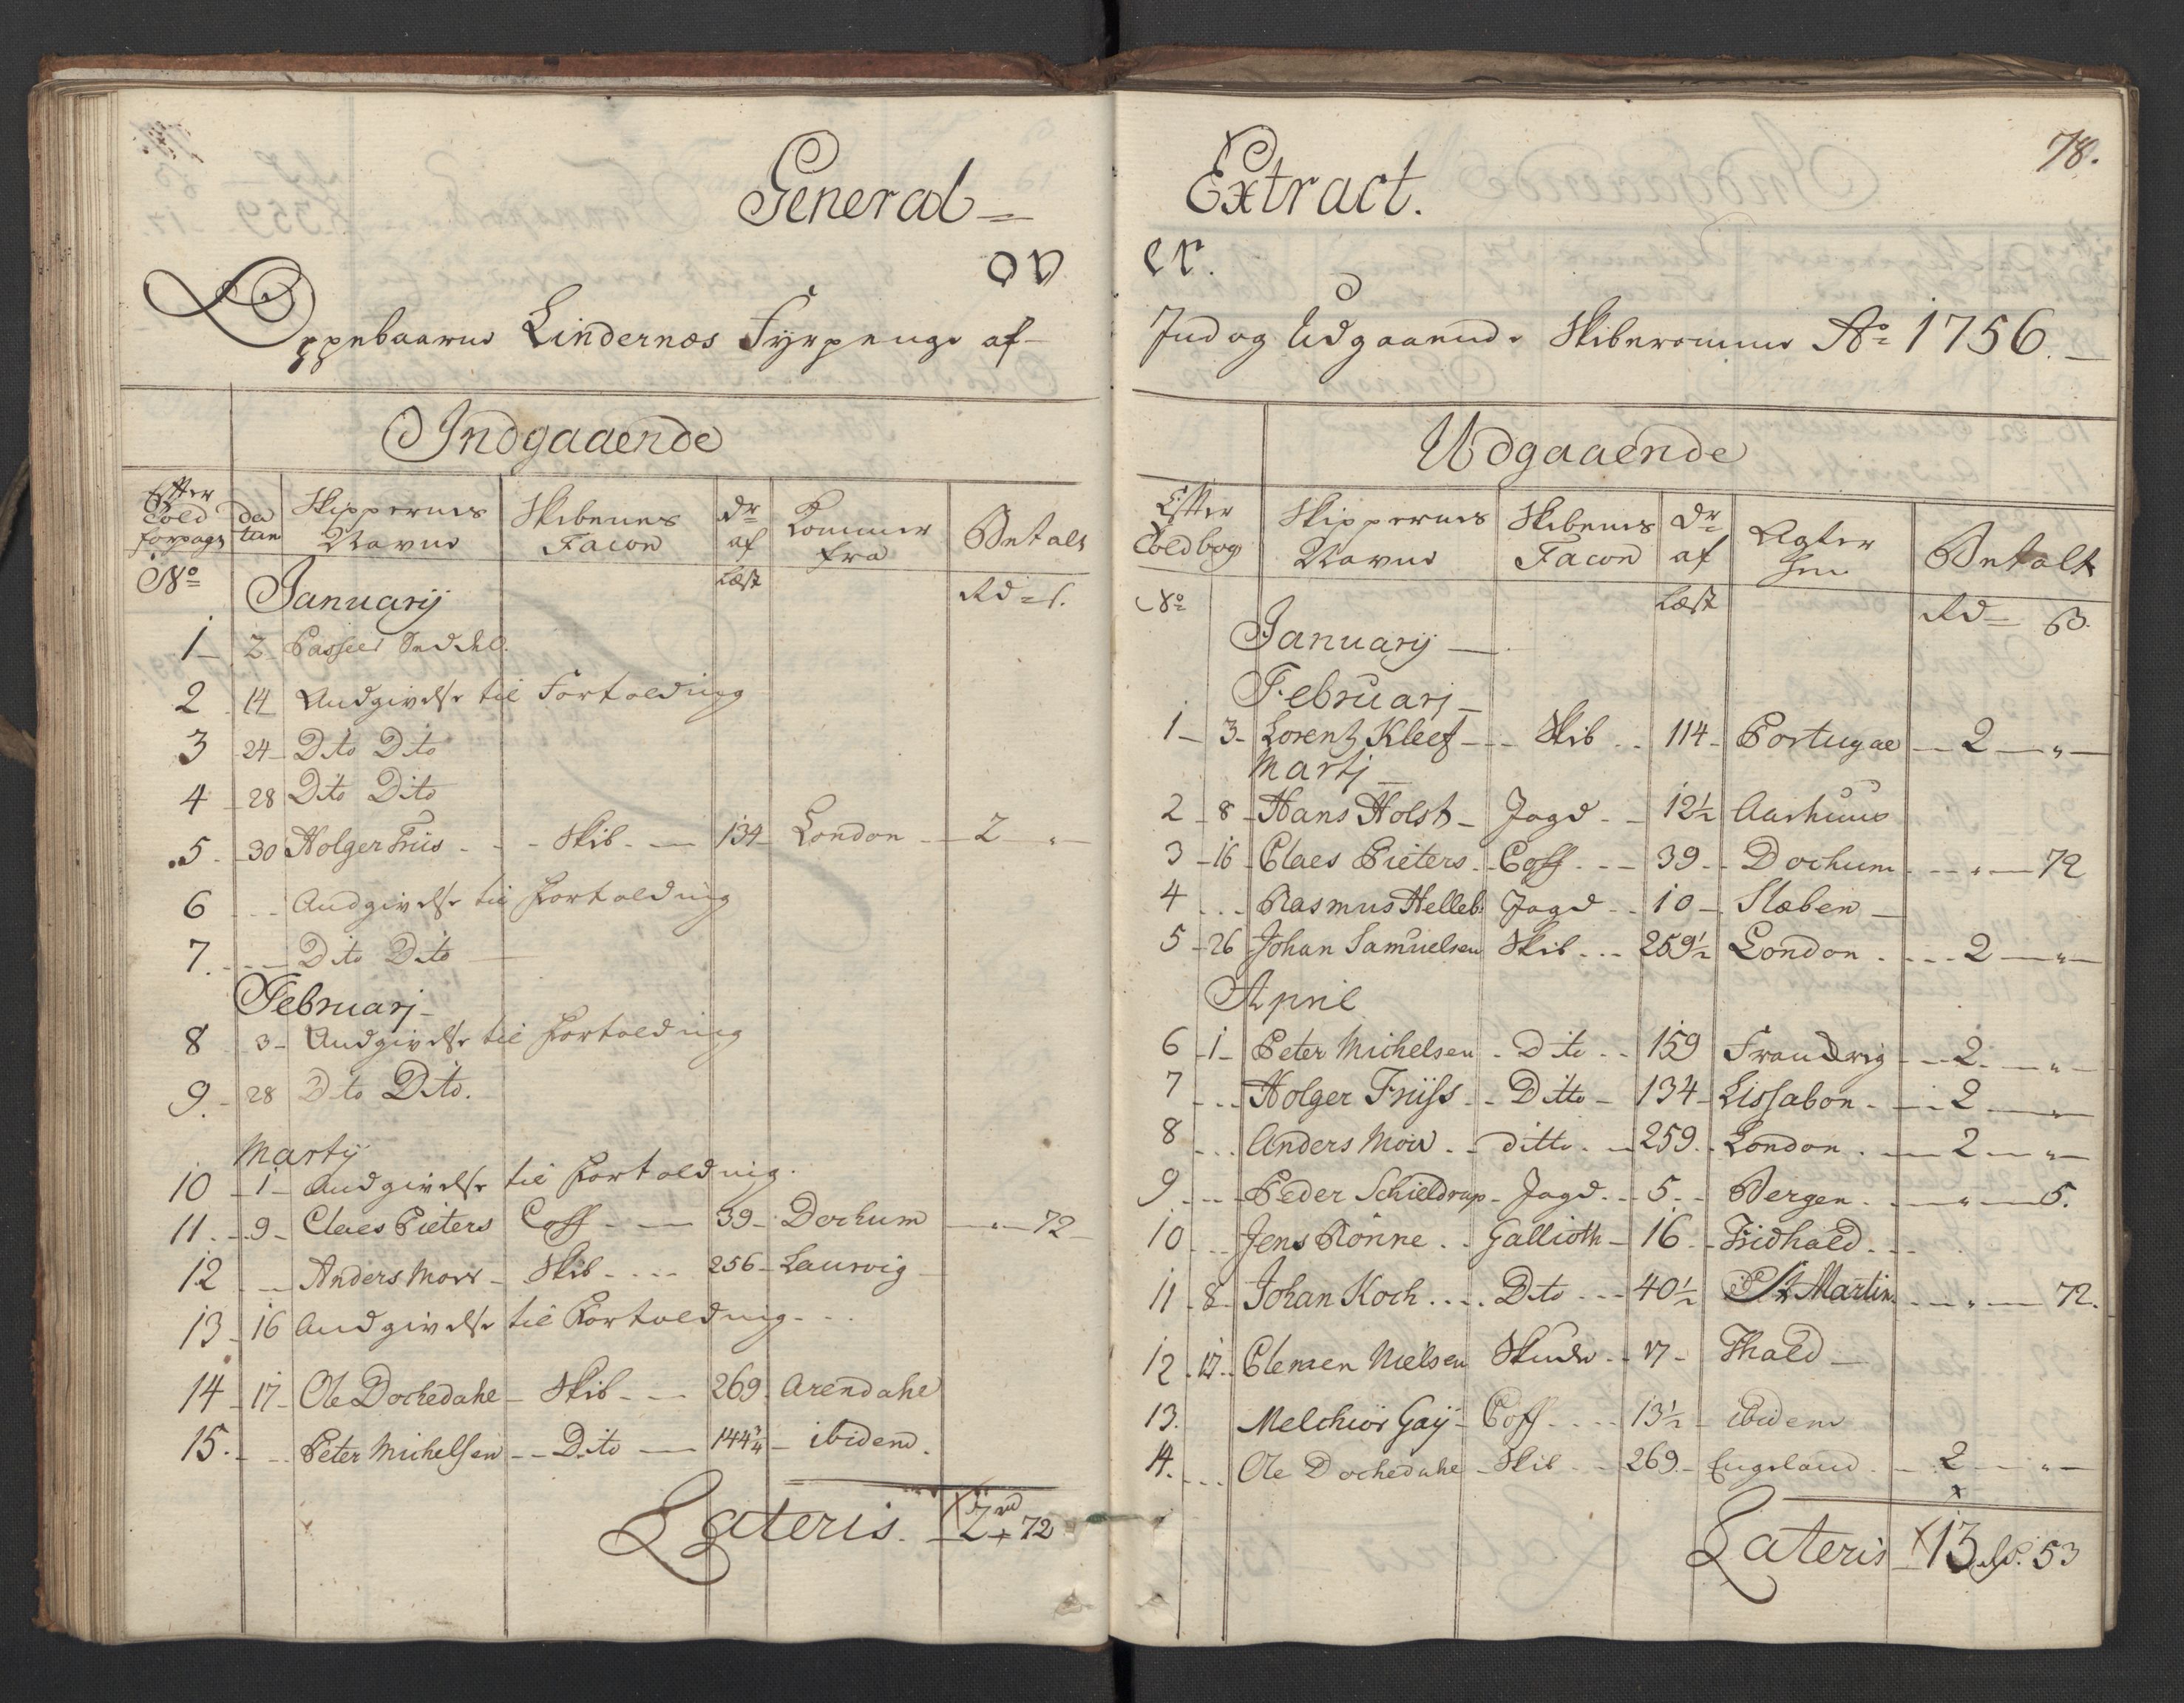 General Extract.
78.
ov er.
Oppebaarne Lindernæs Fyrpenge af Ind og Udgaaende Skiberomme Ao 1756.
Indgaaende
Efter Told
da tum
Skippernes Navne
Skibenes Facon
Dr af Læst
Kommer fra
Betalt
No
Rd s.
Januarij
1 2 Passeer Seddel.
2 14 Andgivelse til Fortolding
3 24 Dito Dito
4 28 Dito Dito
5 30 Holger Friis Skib 134 London 2 "
6 Andgivelse til Fortolding
7. Dito Dito
Februarj
8 3 Andgivelse til Fortolding
9. 28 Dito Dito.
Martij
10 1 Andgivelse til Fortolding.
11. 9 Claes Pieters Coff 39 Dockum " 72
12 Anders Morr Skib 256 Laurvig
13 16 Andgivelse til Fortolding
14 17 Ole Dochedahl Skib 269 Arendahl
15. Peter Michelsen Dito 144 3/4 ibidem.
Lateris. 2 rd 72
Udgaaende
Efter Toldbog
Skippernes Navne
Skibenes Facon
Dr af Læst
Agter hen
Betalt
No
Rd ß.
Januarij
Februarj
1 3 Lorentz Kleef Skib 114 Portugal 2 "
Martj
2 8 Hans Holst Jagd 12 1/2 Aarhuus
3 16 Claes Pieters Coff 39 Dochum " 72
4 Rasmus Helleb: Jagd 10 Stæben
5 26 Johan Samuelsen Skib 259 1/2 London 2 "
April
6 1 Peter Michelsen Dito 159 Frandrig 2 "
7 Holger Friiss Ditto 134 Lissabon 2 "
8 Anders Mow ditto 259 London 2 "
9 Peder Schieldrup Jagd 5 Bergen " 5.
10 Jens Rönne Gallioth 16 Fridhald
11 8 Johan Koch Dito 40 1/2 St Martin " 72.
12 17 Clemen Nielsen Skude 17 Fhald
13. Melchior Gaÿ Coff 13 1/2 ibidem
14. Ole Dochedahl Skib 269 Engeland 2 "
Lateris 13 rd. 53